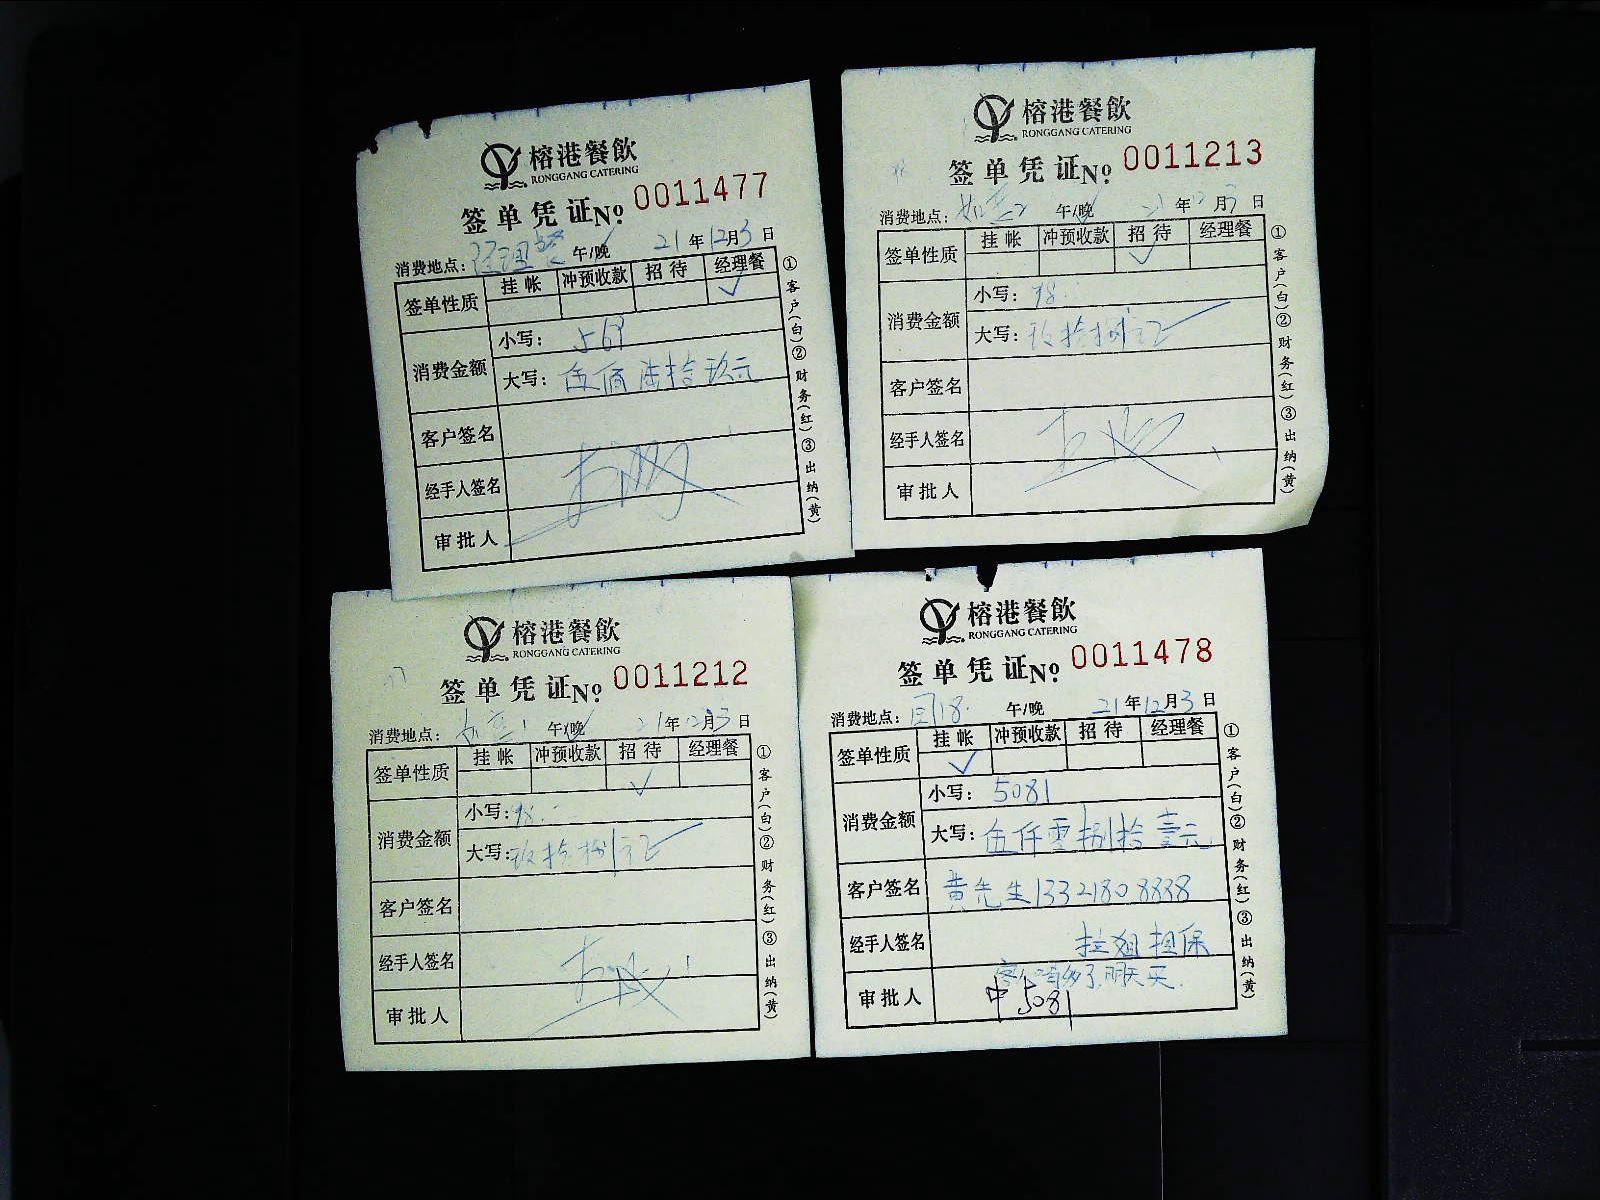 榕港餐飲
RONGGANG CATERING
签单凭证No. 0011477
消费地点：经理餐 午/晚 21年12月3日
签单性质 挂帐 冲预收款 招待 经理餐
✓
消费金额 小写：569
大写：伍佰陆拾玖元
客户签名
经手人签名
审批人
①客户(白)②财务(红)③出纳(黄)
榕港餐飲
RONGGANG CATERING
签单凭证No. 0011213
消费地点： 午/晚 21年12月3日
签单性质 挂帐 冲预收款 招待 经理餐
✓
消费金额 小写：98.
大写：玖拾捌元正
客户签名
经手人签名
审批人
①客户(白)②财务(红)③出纳(黄)
榕港餐飲
RONGGANG CATERING
签单凭证No. 0011212
消费地点： 午/晚 21年12月3日
签单性质 挂帐 冲预收款 招待 经理餐
✓
消费金额 小写：98.
大写：玖拾捌元正
客户签名
经手人签名
审批人
①客户(白)②财务(红)③出纳(黄)
榕港餐飲
RONGGANG CATERING
签单凭证No. 0011478
消费地点： 午/晚 21年12月3日
签单性质 挂帐 冲预收款 招待 经理餐
✓
消费金额 小写：5081
大写：伍仟零捌拾壹元
客户签名 黄先生 13321808888
经手人签名 拉姐担保
客人喝多了.明天买.
审批人 中5081
①客户(白)②财务(红)③出纳(黄)